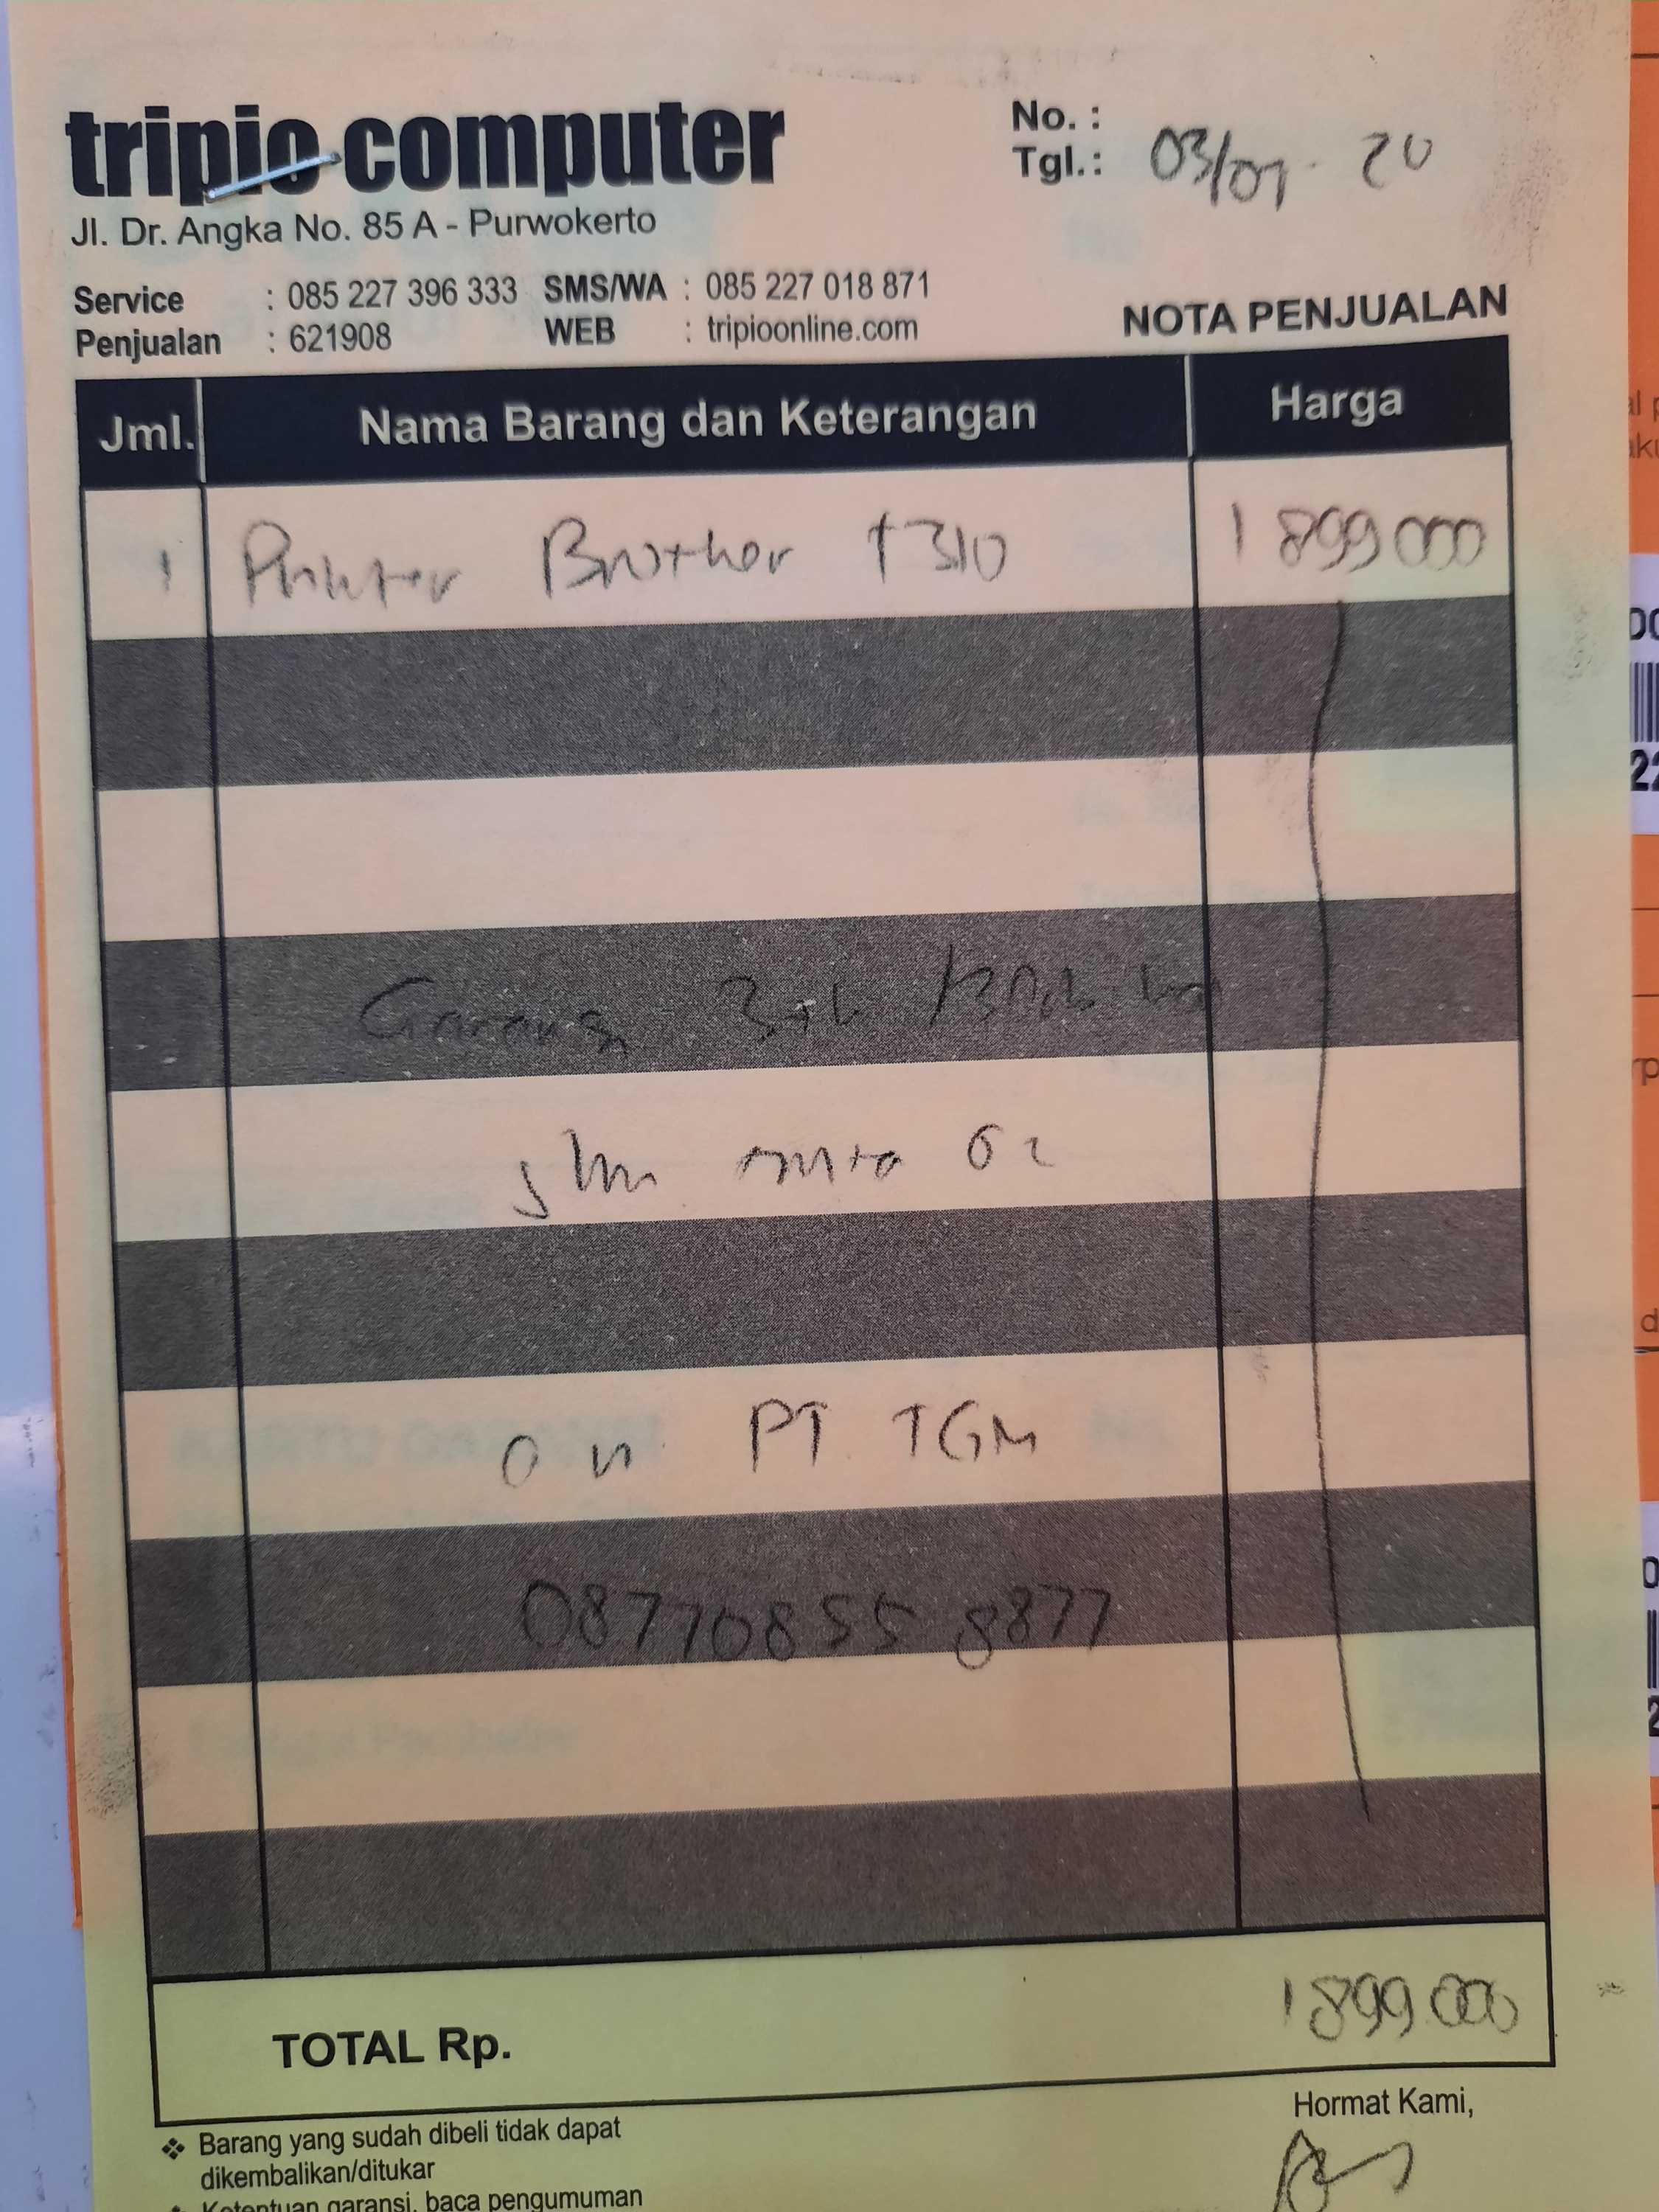 tripio computer
Jl. Dr. Angka No. 85 A - Purwokerto
No. :
Tgl.: 03/07 - 20
Service : 085 227 396 333 SMS/WA : 085 227 018 871
Penjualan : 621908 WEB : tripioonline.com
NOTA PENJUALAN
Jml. Nama Barang dan Keterangan Harga
1 Printer Brother T310 1 899 000
Garansi 3th
on PT TGM
08770855 8877
TOTAL Rp. 1 899.000
Hormat Kami,
❖ Barang yang sudah dibeli tidak dapat
dikembalikan/ditukar
Ketentuan garansi, baca pengumuman